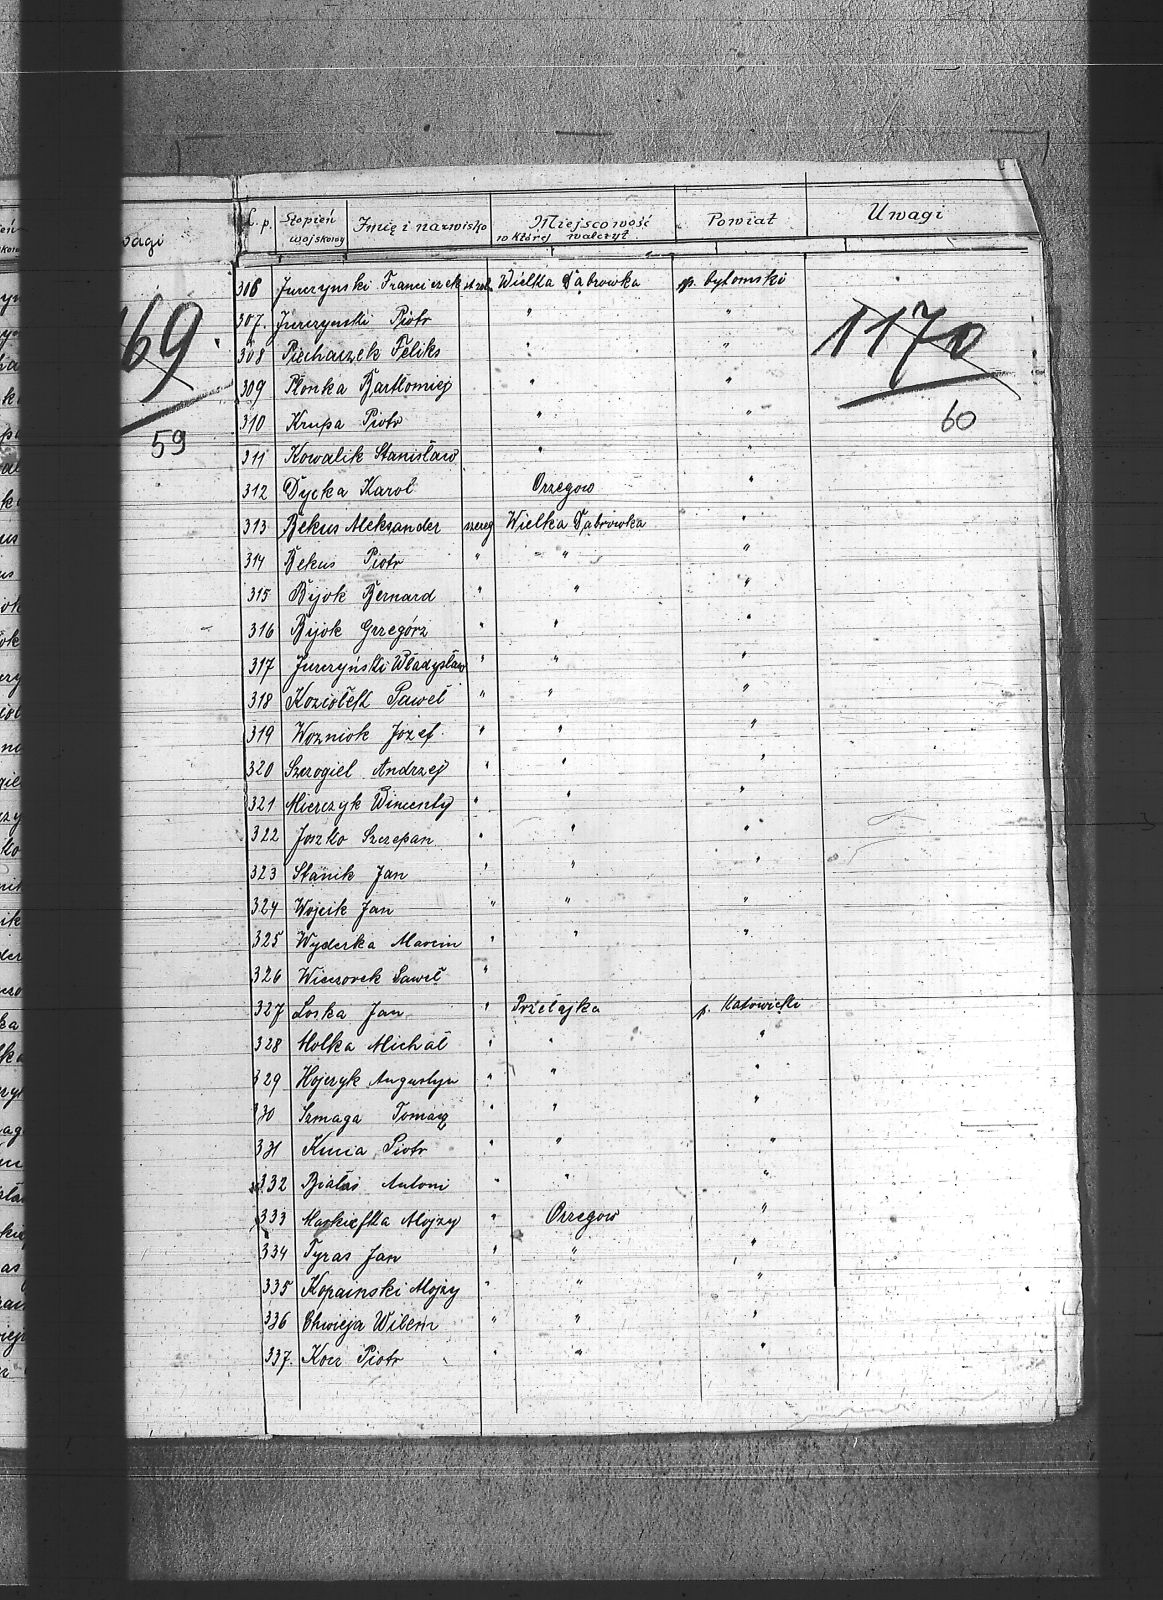 L. p. Stopień wojskowy Imię i nazwisko Miejscowość w której walczył Powiat Uwagi
306 Jurczynski Franciszek strzel. Wielka Dąbrowka p. bytomski
307. Jurczynski Piotr " "
308 Piecharzek Feliks " "
309 Płonka Bartłomiej " "
310 Krupa Piotr " "
311 Kowalik Stanisław " "
312 Dycka Karol Orzegow "
313 Bekus Aleksander szereg Wielka Dąbrowka "
314 Bekus Piotr " " "
315 Bijok Bernard " " "
316 Bijok Grzegórz " " "
317 Jurczyński Władysław " " "
318 Koziołek Paweł " " "
319 Wozniok Józef. " " "
320 Szczogiel Andrzej " " "
321 Mierczyk Wincenty " " "
322 Joszko Szczepan " " "
323 Stanik Jan " " "
324 Wojcik Jan " " "
325 Wyderka Marcin " " "
326 Wieczorek Paweł "
327 Loska Jan " Przełajka p. Katowicki
328 Molka Michał " " "
329 Hojczyk Augustyn " " "
330 Szmaga Tomasz " " "
331 Kunia Piotr " " "
332 Białas Antoni " " "
333 Alojzy " Orzegow "
334 Tyras Jan " " "
335 Kopainski Alojzy " " "
336 Chwieja Wilem " " "
337. Kocz Piotr " " "
1170
60
69.
59
wagi